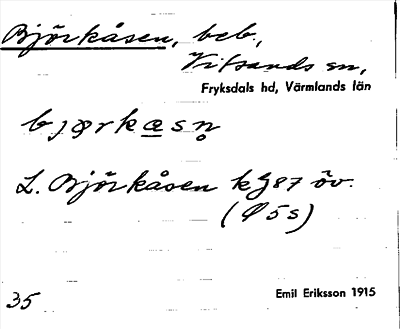 Björkåsen, beb.,
Vitsands sn,
Fryksdals hd, Värmlands län
bjørkæsn̥
L. Björkåsen kJ87 öv.
(Ø5s)
35
Emil Eriksson 1915